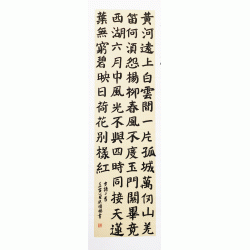 黃河遠上白雲間一片孤城萬仞山羌
笛何須怨楊柳春風不度玉門關畢竟
西湖六月中風光不與四時同接天蓮
葉無窮碧映日荷花別樣紅
古詩二首